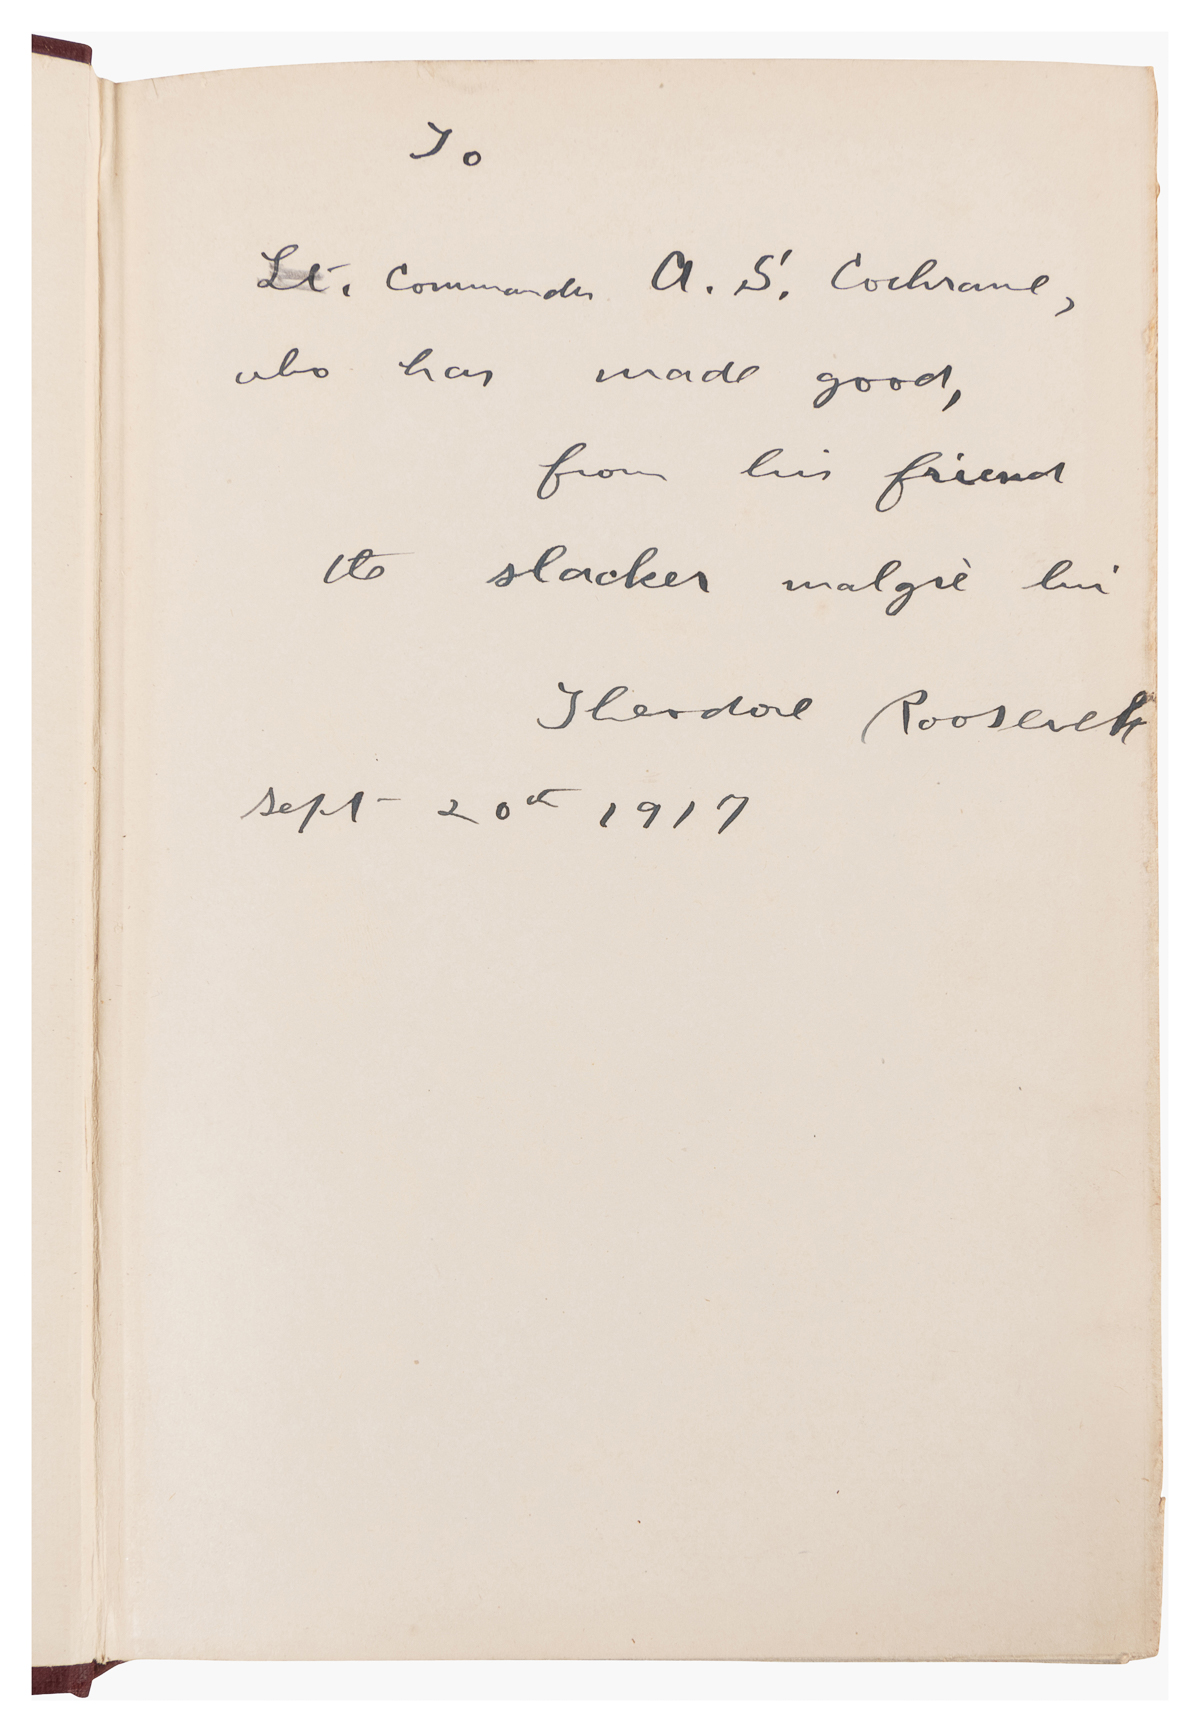 To
Lt. Commander A. S. Cochrane,
who has made good,
from his friend
the slacker malgrè lui
Theodore Roosevelt
Sept 20th 1917